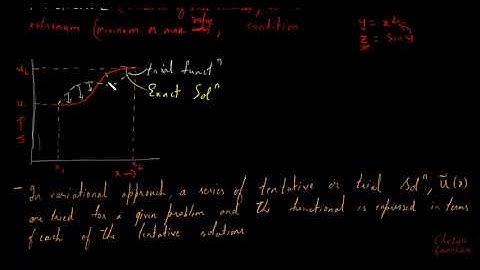 extremum (minimum or max value), condition
y = x²
z = sin y
u₂
trial functⁿ
Exact Solⁿ
u₁
x₁
x →
x₂
- In variational approach, a series of tentative or trial Solⁿ, ũ(x)
are tried for a given problem and the functional is expressed in terms
of each of the tentative solutions